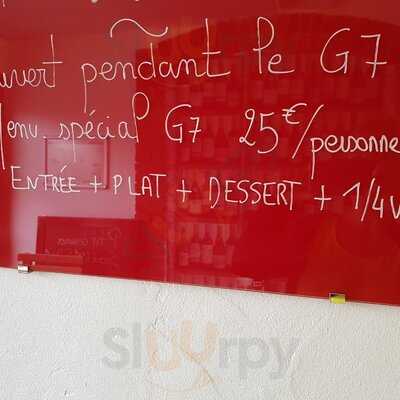 uvert pendant le G7
Menu spécial G7 25€/personne
ENTRÉE + PLAT + DESSERT + 1/4v
Sluurpy